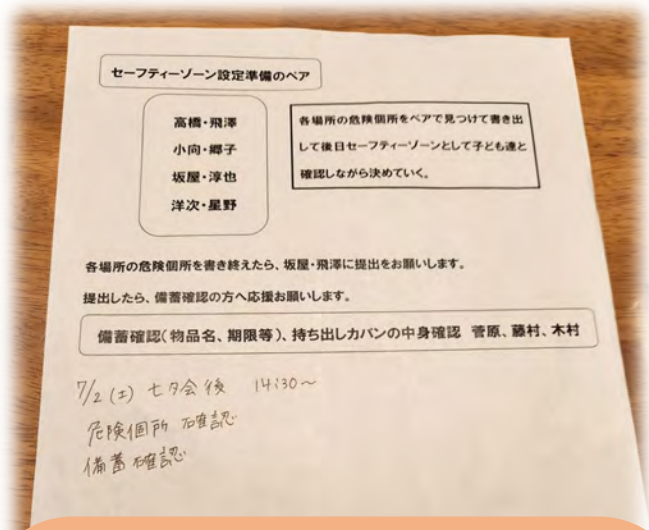 セーフティーゾーン設定準備のペア
高橋・飛澤
小向・郷子
坂屋・淳也
洋次・星野
各場所の危険個所をペアで見つけて書き出
して後日セーフティーゾーンとして子ども達と
確認しながら決めていく。
各場所の危険個所を書き終えたら、坂屋・飛澤に提出をお願いします。
提出したら、備蓄確認の方へ応援お願いします。
備蓄確認(物品名、期限等)、持ち出しカバンの中身確認 菅原、藤村、木村
7/2(土) 七夕会後 14:30~
危険個所 確認
備蓄確認